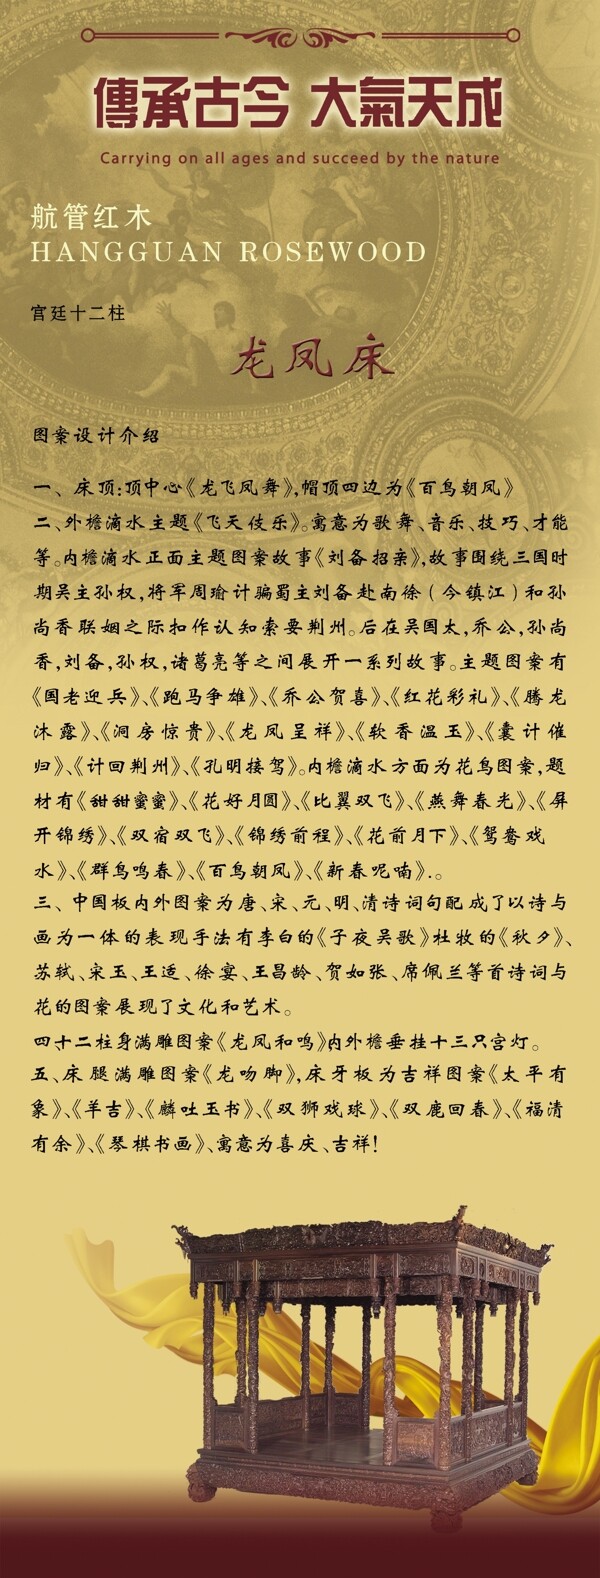 傳承古今 大氣天成
Carrying on all ages and succeed by the nature
航管红木
HANGGUAN ROSEWOOD
宫廷十二柱
龙凤床
图案设计介绍
一、床顶:顶中心《龙飞凤舞》,帽顶四边为《百鸟朝凤》
二、外檐滴水主题《飞天伎乐》。寓意为歌舞、音乐、技巧、才能
等。内檐滴水正面主题图案故事《刘备招亲》,故事围绕三国时
期吴主孙权,将军周瑜计骗蜀主刘备赴南徐(今镇江)和孙
尚香联姻之际扣作认知索要荆州。后在吴国太,乔公,孙尚
香,刘备,孙权,诸葛亮等之间展开一系列故事。主题图案有
《国老迎兵》、《跑马争雄》、《乔公贺喜》、《红花彩礼》、《腾龙
沐露》、《洞房惊贵》、《龙凤呈祥》、《软香温玉》、《囊计催
归》、《计回荆州》、《孔明接驾》。内檐滴水方面为花鸟图案,题
材有《甜甜蜜蜜》、《花好月圆》、《比翼双飞》、《燕舞春光》、《屏
开锦绣》、《双宿双飞》、《锦绣前程》、《花前月下》、《鸳鸯戏
水》、《群鸟鸣春》、《百鸟朝凤》、《新春呢喃》.。
三、中国板内外图案为唐、宋、元、明、清诗词句配成了以诗与
画为一体的表现手法有李白的《子夜吴歌》杜牧的《秋夕》、
苏轼、宋玉、王适、徐宴、王昌龄、贺如张、席佩兰等首诗词与
花的图案展现了文化和艺术。
四、十二柱身满雕图案《龙凤和鸣》内外檐垂挂十三只宫灯。
五、床腿满雕图案《龙吻脚》,床牙板为吉祥图案《太平有
象》、《羊吉》、《麟吐玉书》、《双狮戏球》、《双鹿回春》、《福清
有余》、《琴棋书画》、寓意为喜庆、吉祥!